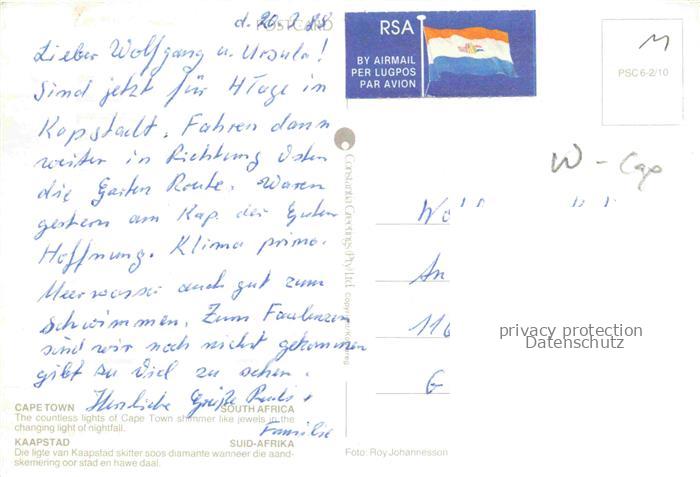 POSTCARD
d. 20.2.88
Lieber Wolfgang u. Ursula!
Sind jetzt für 4 Tage in
Kapstadt. Fahren dann
weiter in Richtung Osten
die Garten Route. Waren
gestern am Kap der Guten
Hoffnung. Klima prima.
Meerwasser auch gut zum
schwimmen. Zum Faulenzen
sind wir noch nicht gekommen
gibt zu viel zu sehen.
Herzliche Grüße
Familie
CAPE TOWN SOUTH AFRICA
The countless lights of Cape Town shimmer like jewels in the
changing light of nightfall.
KAAPSTAD SUID-AFRIKA
Die ligte van Kaapstad skitter soos diamante wanneer die aand-
skemering oor stad en hawe daal.
Constantia Greetings (Pty) Ltd.
RSA
BY AIRMAIL
PER LUGPOS
PAR AVION
M
PSC 6-2/10
W - Cap
Wo
An
116
G
privacy protection
Datenschutz
Foto: Roy Johannesson